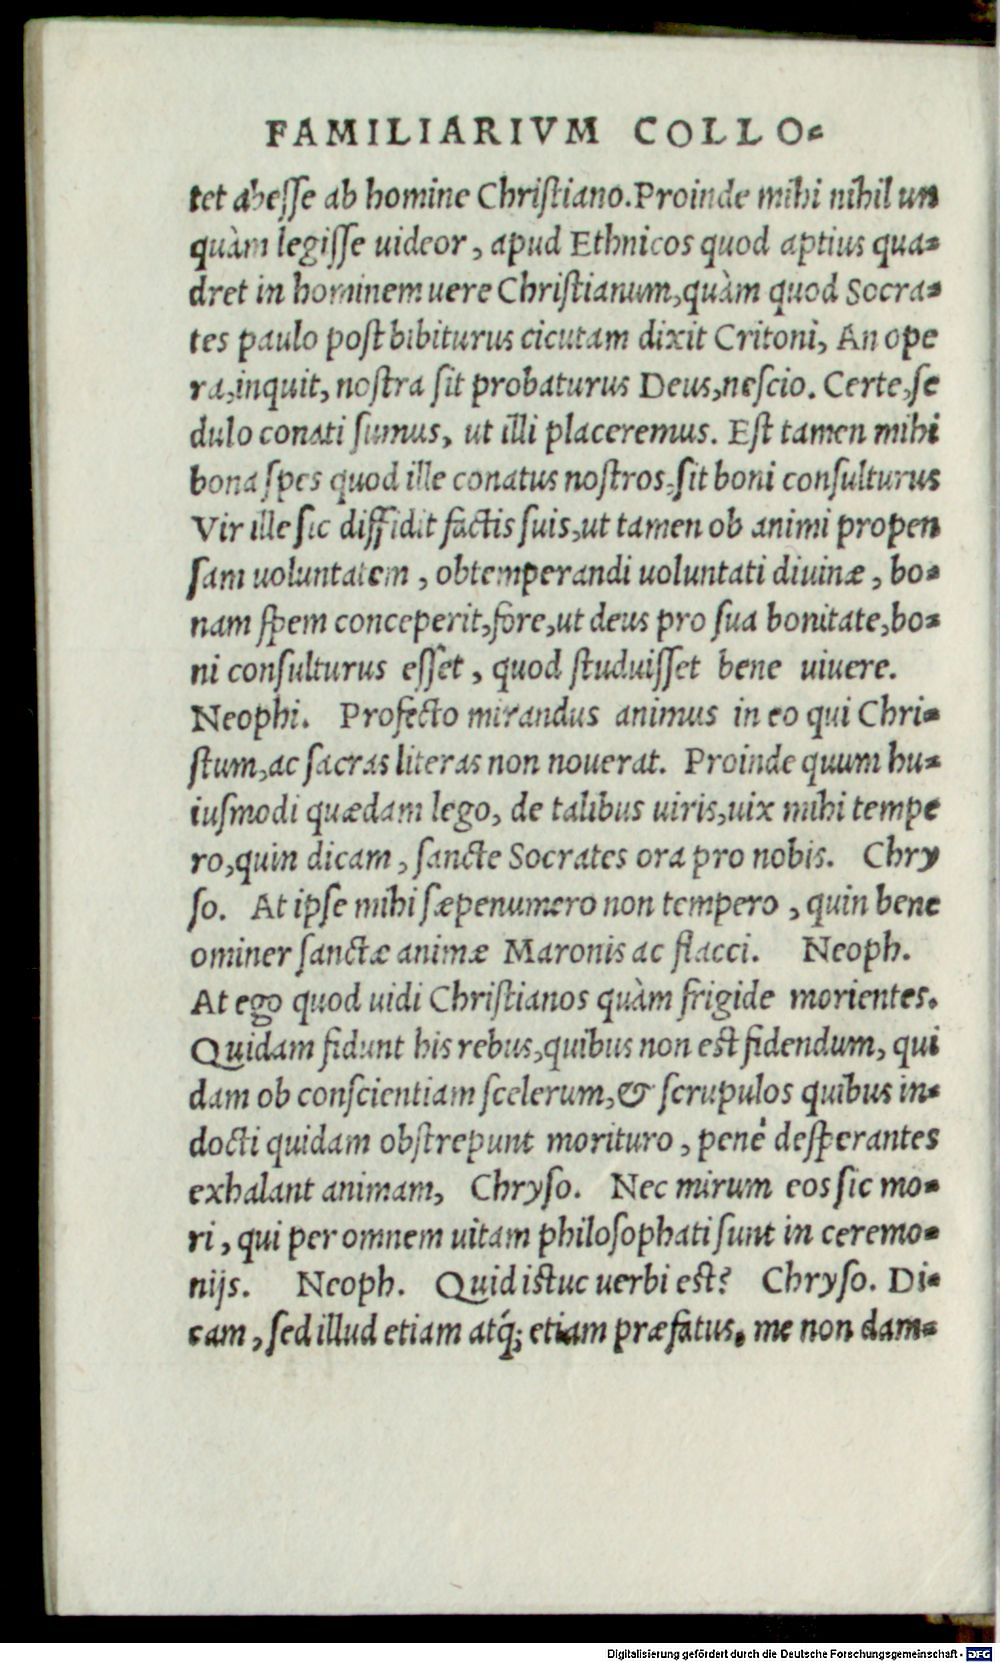 FAMILIARIVM COLLO-
tet abesse ab homine Christiano. Proinde mihi nihil un
quàm legisse uideor, apud Ethnicos quod aptius qua-
dret in hominem uere Christianum, quàm quod Socra-
tes paulo post bibiturus cicutam dixit Critoni, An ope
ra, inquit, nostra sit probaturus Deus, nescio. Certe, se
dulo conati sumus, ut illi placeremus. Est tamen mihi
bona spes quod ille conatus nostros, sit boni consulturus
Vir ille sic diffidit factis suis, ut tamen ob animi propen
sam uoluntatem, obtemperandi uoluntati diuinæ, bo-
nam spem conceperit, fore, ut deus pro sua bonitate, bo-
ni consulturus esset, quod studuisset bene uiuere.
Neophi. Profecto mirandus animus in eo qui Chri-
stum, ac sacras literas non nouerat. Proinde quum hu-
iusmodi quædam lego, de talibus uiris, uix mihi tempe
ro, quin dicam, sancte Socrates ora pro nobis. Chry
so. At ipse mihi sæpenumero non tempero, quin bene
ominer sanctæ animæ Maronis ac flacci. Neoph.
At ego quod uidi Christianos quàm frigide morientes.
Quidam fidunt his rebus, quibus non est fidendum, qui
dam ob conscientiam scelerum, & scrupulos quibus in-
docti quidam obstrepunt morituro, penè desperantes
exhalant animam, Chryso. Nec mirum eos sic mo-
ri, qui per omnem uitam philosophati sunt in ceremo-
nijs. Neoph. Quid istuc uerbi est? Chryso. Di-
cam, sed illud etiam atq́; etiam præfatus, me non dam-
Digitalisierung gefördert durch die Deutsche Forschungsgemeinschaft - DFG